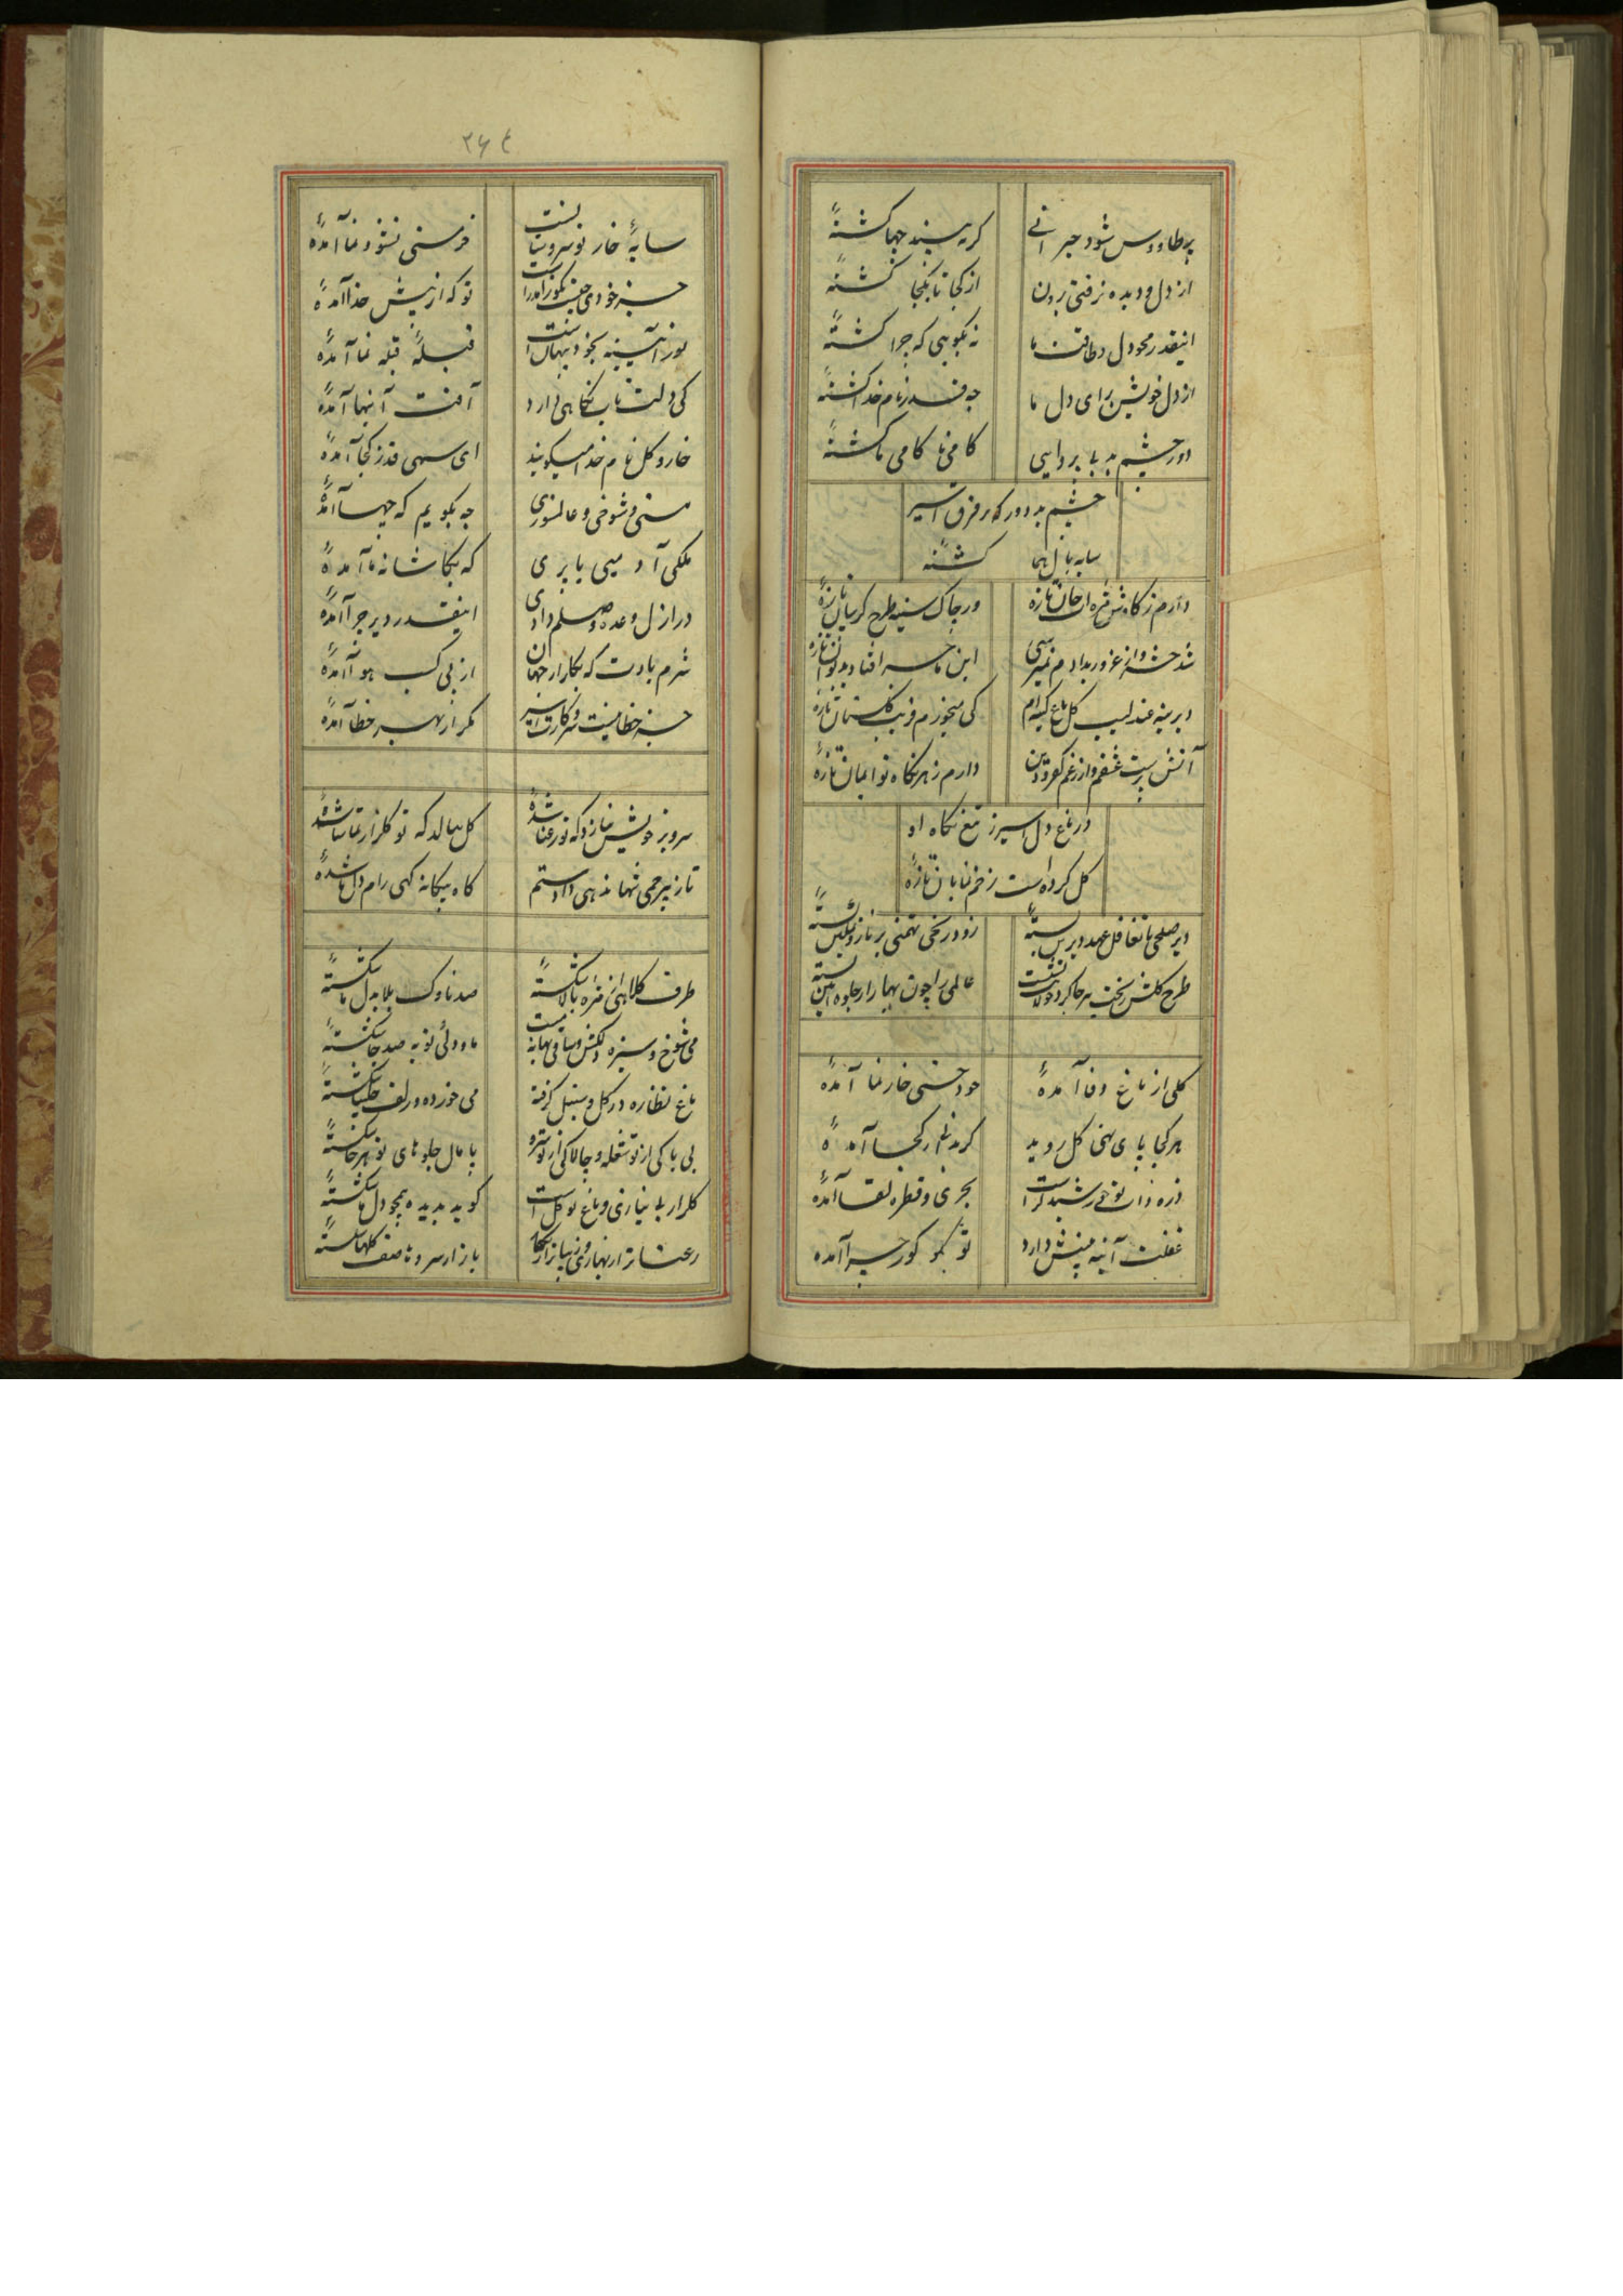 پر طاووس شود حیرانی
گر به بیند چها گشتهٔ
از دل و دیده نرفتی برون
از کجا تا بکجا گشتهٔ
اینقدر محو دل و طاقت ما
نه بگویی که چرا گشتهٔ
از دل خویش برای دل ما
چه قدر نام خدا گشتهٔ
دور چشم بد با پروایی
کامی ناکامی ما گشتهٔ
چشم بد دور که بر فرق اسیر
سایه بال هما گشتهٔ
دارم ز نگاه شوخ مژه ات جان تازهٔ
در چاک سینه طرح گریبان تازهٔ
شد حشر و از غرور بدادم نمیرسی
این ماجرا فتاد بدیوان تازهٔ
دیرینه عندلیب گل باغ کینه ام
کی میخورم فریب گلستان تازهٔ
آتش پرست عشقم و از رغم کفر و دین
دارم ز هر نگاه تو ایمان تازهٔ
در باغ دل اسیر ز تیغ نگاه او
گل کرده است زخم نمایان تازهٔ
دیر صلحی با تغافل عهد دیرین بستهٔ
زود رنجی تهمتی بر ناز و تمکین بستهٔ
طرح گلشن ریخت هر جا گرد جولانت نشست
عالمی را چون بهار از جلوه آیین بستهٔ
گلی از باغ وفا آمدهٔ
خود حسنی خار نما آمدهٔ
هر کجا پای نهی گل روید
گرد از کجا آمدهٔ
ذره ذات تو خورشید گر است
بحری و قطره لقا آمدهٔ
غفلت آئینه بینش دارد
تو بگو کور چرا آمده
۲۶۴
سایهٔ خار تو سرو بستانست
خرمنی نشو و نما آمدهٔ
جز خودی چیست بگو زاد رهت
تو که از پیش خدا آمدهٔ
نور آئینه بخود پنهان است
قبلهٔ قبله نما آمدهٔ
کی دلت تاب نگاهی دارد
آفت آینها آمدهٔ
خار و گل نام خدا میگویند
ای سهی قد ز کجا آمدهٔ
مستی و شوخی و عالمسوزی
چه بگویم که چها آمدهٔ
ملکی آدمیی یا پری
که بکاشانه ما آمدهٔ
در ازل وعده وصلم دادی
اینقدر دیر چرا آمدهٔ
شرم بادت که بکار دو جهان
از پی کسب هوا آمدهٔ
جز خطا نیست سر و کارت اسیر
مگر از بهر خطا آمدهٔ
سرو بر خویش بنازد که تو رعنا شدهٔ
گل ببالد که تو گلزار تماشا شدهٔ
تا ز بیرحمی تنها ندهی داد ستم
گاه بیگانه گهی رام دل ما شدهٔ
طرف کلاه از مژه بالا شکستهٔ
صد ناوک بلا بدل ما شکستهٔ
می شوخ و سبزه دلکش و ساقی بهانه نیست
ما و دلی توبه صد جا شکستهٔ
باغ نظاره در گل و سنبل گرفته
می خورده و زلف چلیپا شکستهٔ
بی باکی از تو شعله و چالاکی از تو
پامال جلوهای تو هر جا شکستهٔ
گلزار بی نیازی و باغ تو گل است
گوید بدیده همچو دل ما شکستهٔ
رعنا تر از بهاری و زیبا تر از نگار
بازار سرو تا صف گلها شکستهٔ